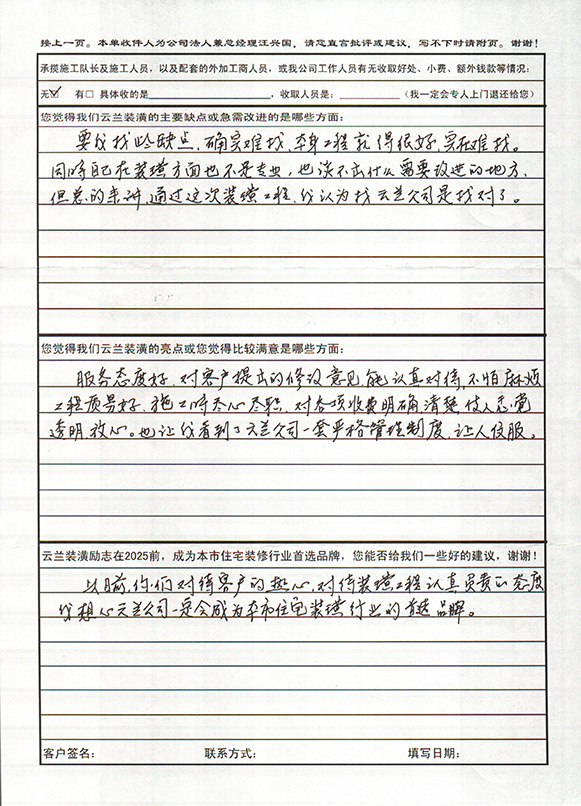 接上一页。本单收件人为公司法人兼总经理汪兴国，请您直言批评或建议，写不下时请附页。谢谢！
承揽施工队长及施工人员，以及配套的外加工商人员，或我公司工作人员有无收取好处、小费、额外钱款等情况：
无☑ 有□ 具体收的是，收取人是：（我一定会专人上门退还给您）
您觉得我们云兰装潢的主要缺点或急需改进的是哪些方面：
要我找些缺点，确实难找，本身工程就得很好，实在难找。
同时自己在装潢方面也不是专业，也谈不出什么需要改进的地方，
但总的来讲，通过这次装璜工程，我认为找云兰公司是找对了。
您觉得我们云兰装潢的亮点或您觉得比较满意是哪些方面：
服务态度好，对客户提出的修改意见，能认真对待，不怕麻烦
工程质量好，施工时尽心尽职，对各项收费明确清楚使人感觉
透明放心。也让我看到了云兰公司一套严格管理制度，让人信服。
云兰装潢励志在2025前，成为本市住宅装修行业首选品牌，您能否给我们一些好的建议，谢谢！
以目前，你们对待客户的热心，对待装璜工程认真负责的态度
我想心云兰公司一定会成为本市住宅装璜行业的首选品牌。
客户签名： 联系方式： 填写日期：